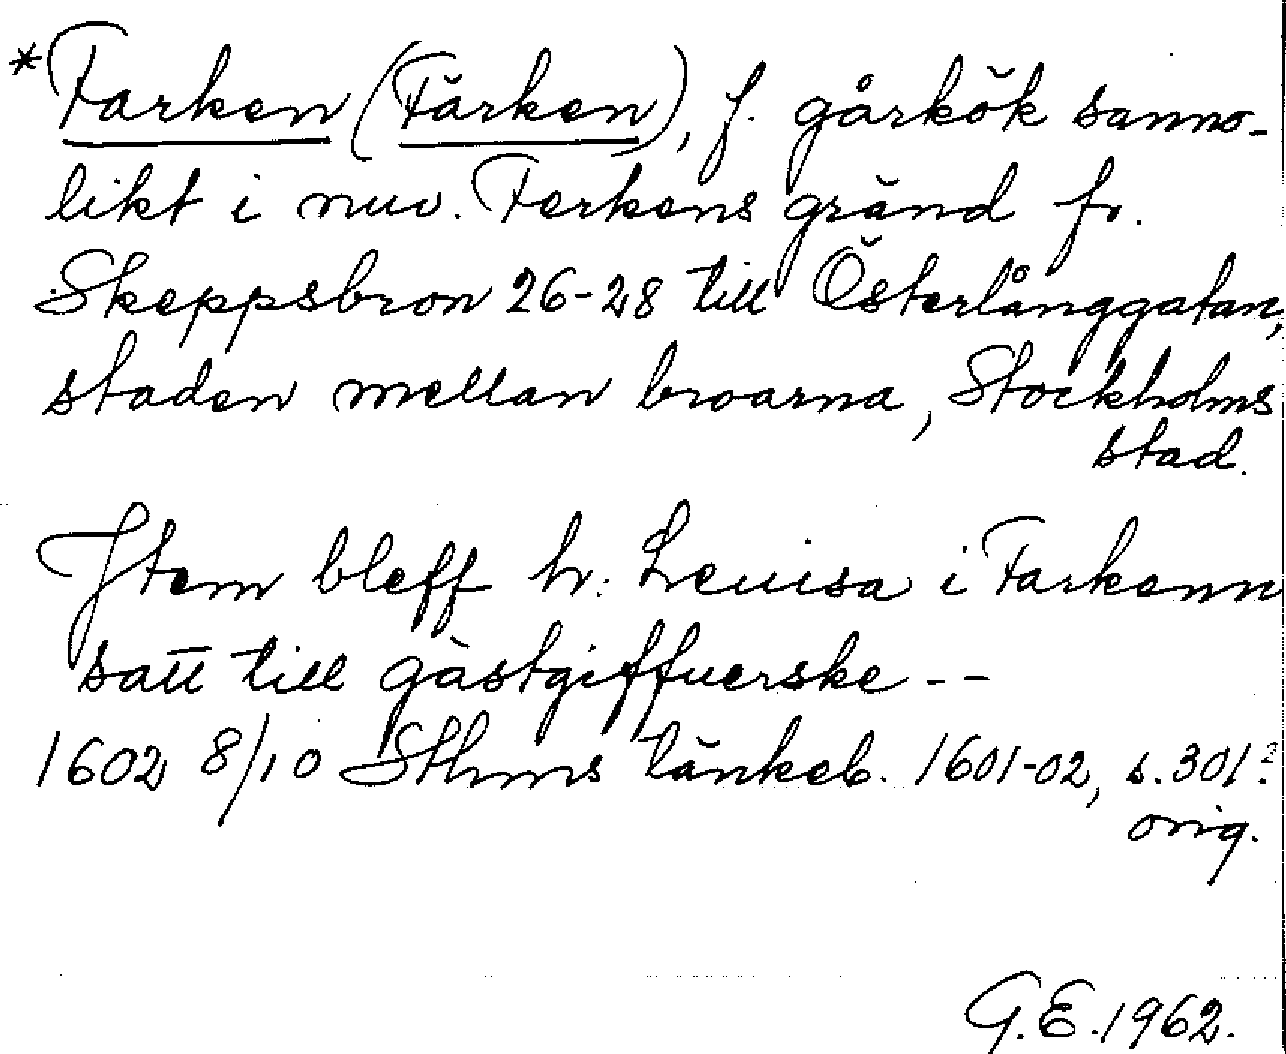 *Farken (Färken), f. gårkök sanno-
likt i nuv. Ferkens gränd fr.
Skeppsbron 26-28 till Österlånggatan,
staden mellan broarna, Stockholms
stad.
Item bleff h. Leuisa i Farkenn
satt till gästgiffuerske --
1602 8/10 Sthms tänkeb. 1601-02, s. 301.
orig.
G.E. 1962.